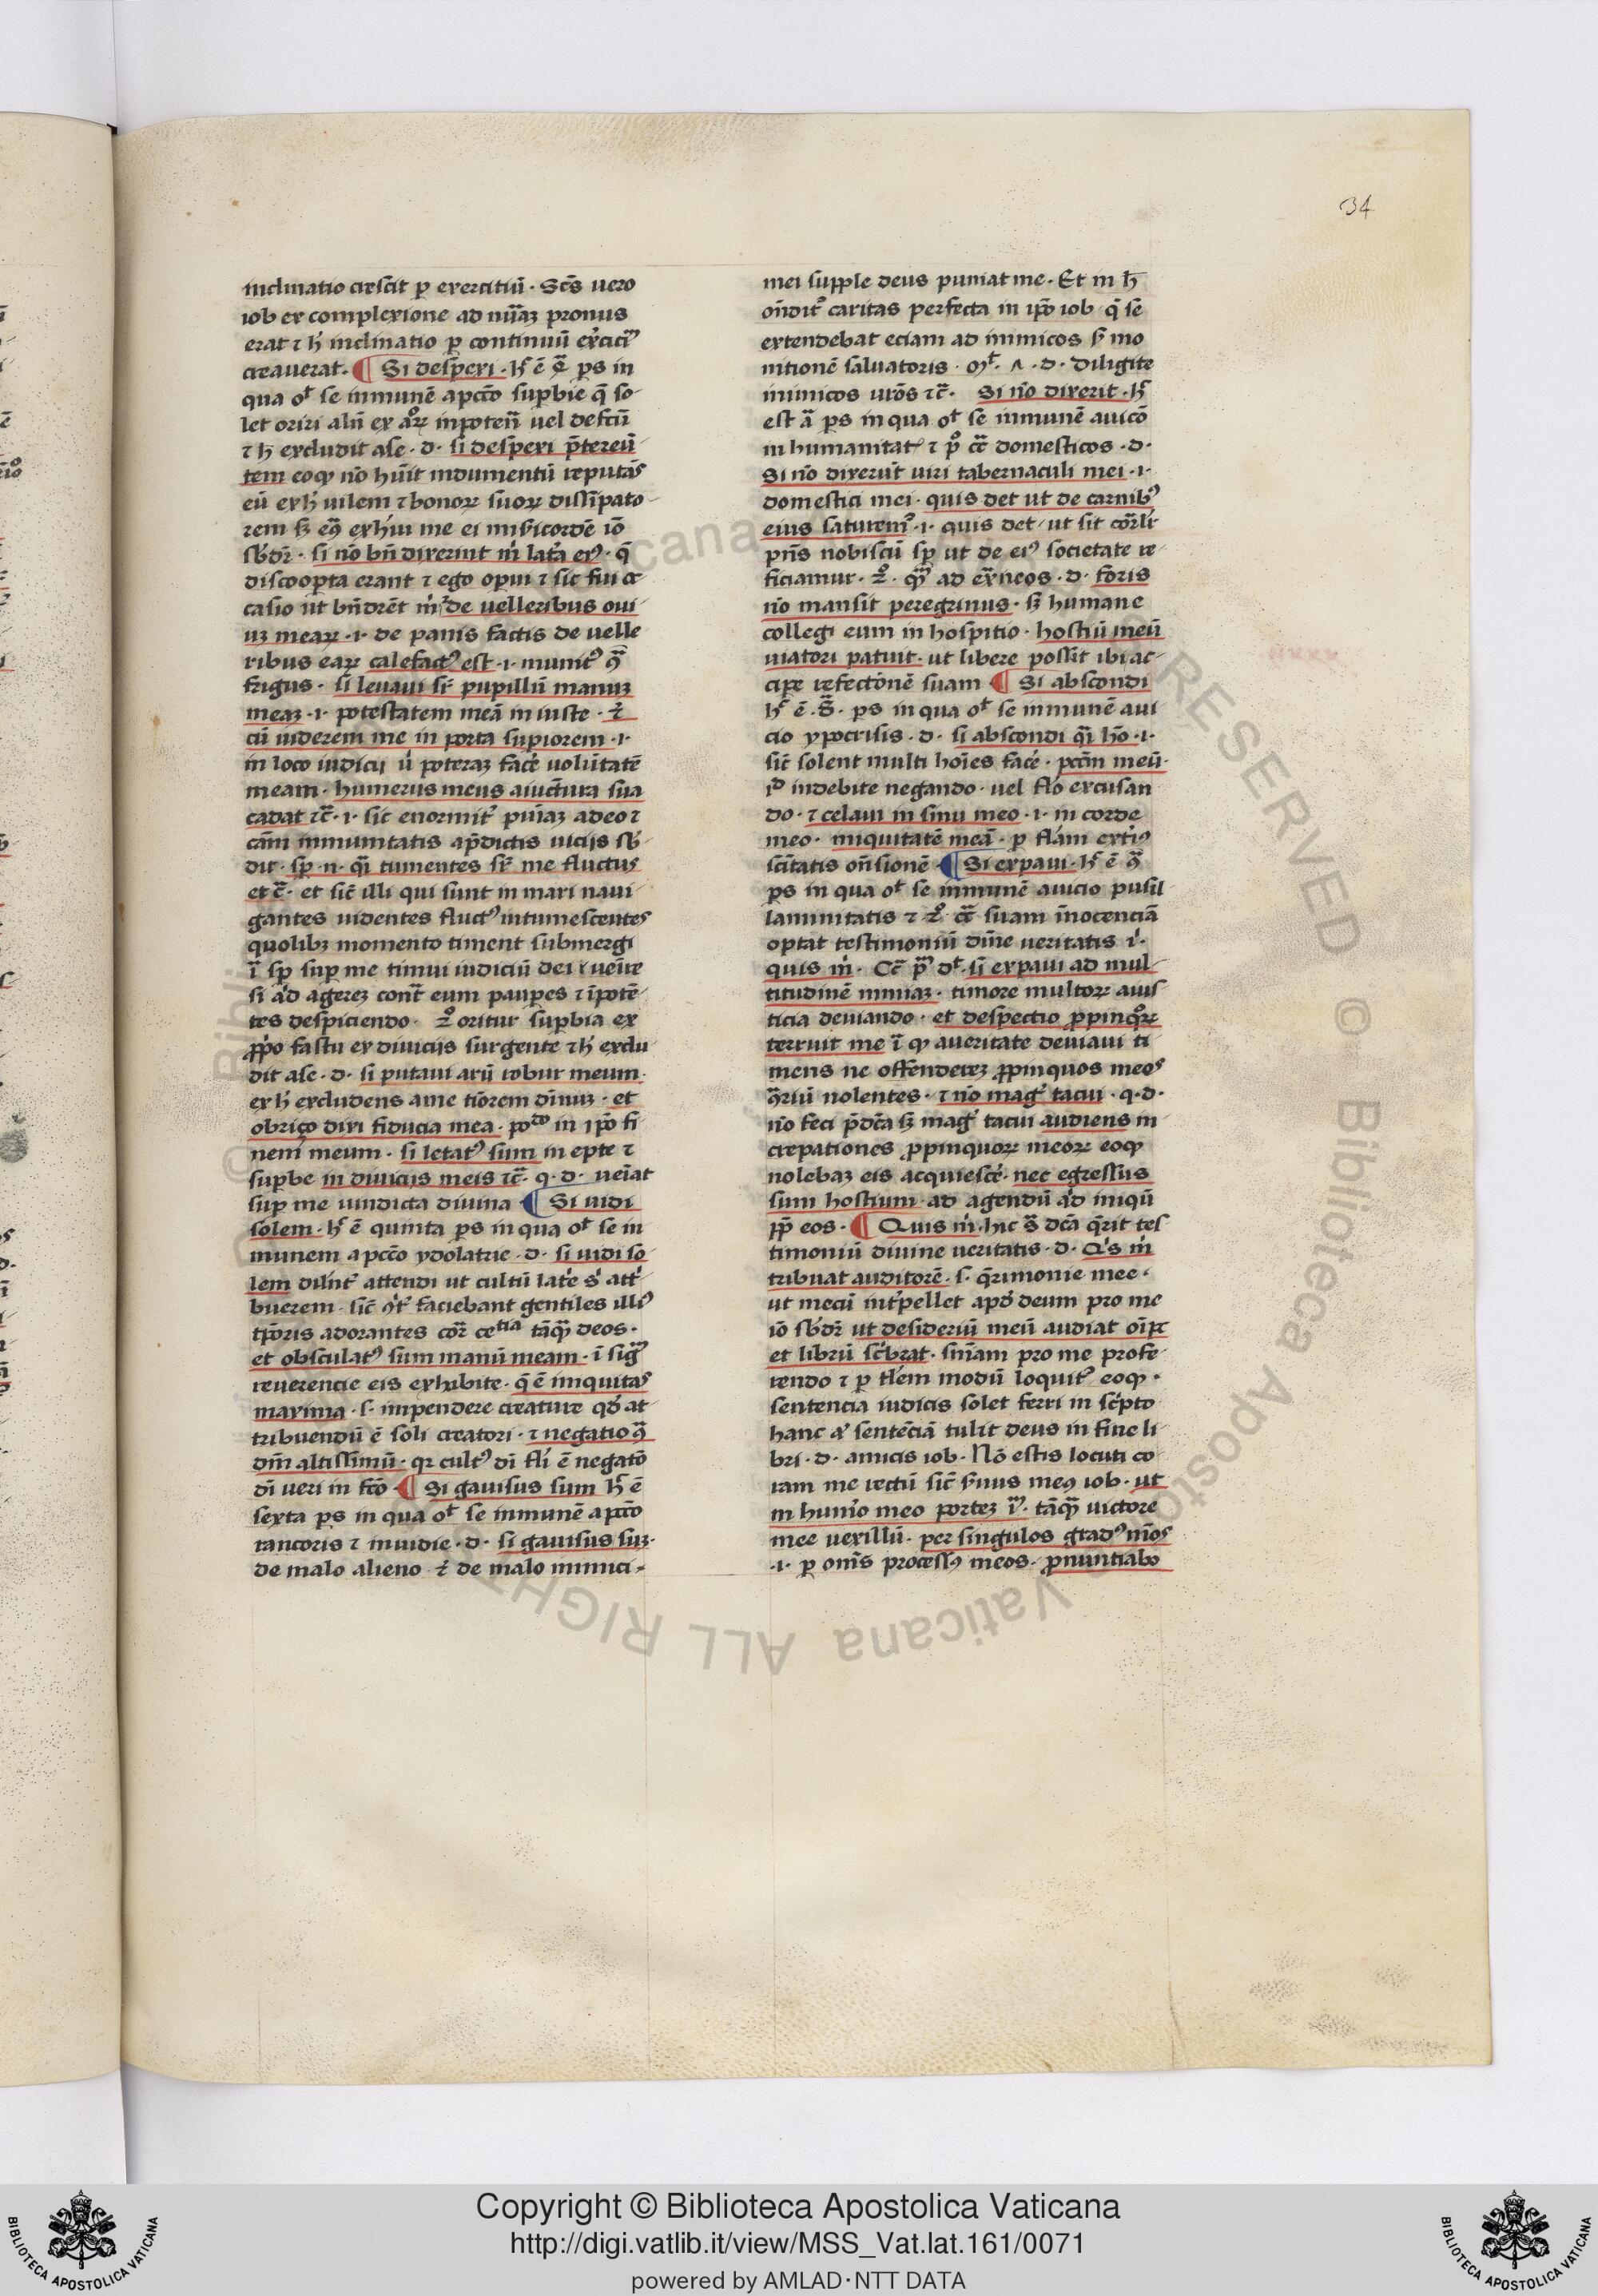 34
inclinatio crescit ꝑ exercitiū · Scs̄ uero
iob ex complexione ad mīaꝫ pronus
erat ⁊ h̄ inclinatio ꝑ continuū ex̄cic̄
creauerat · ¶ Si desperi · h̄ ē ꝑs in
qua oͭ se inmunē a pcc̄o suꝑbie q̄ so
let oriri
⁊ h̄ excludit a se · d · si desperi p̄tereū
tem eo ꝙ nō hūit indumentū reputās
eū ex h̄ uilem ⁊ bonoꝝ suoꝝ dissipato
rem sꝫ exhui me ei mīsicordē iō
sbd̄r · si nō bn̄dixerint m̄ lat̄a eiꝰ · q̄
discooꝑta erant ⁊ ego oꝑui ⁊ sic fui oc
casio ut bn̄dn̄t m̄ de uelleribus oui
uꝫ meaꝝ · i · de panis factis de uelle
ribus eaꝝ calefactꝰ est · i · munitꝰ
frigus · si leuaui sr̄ pupillū manuꝫ
meaꝫ · i · potestatem meā in iuste · ⁊
cū uiderem me in porta suꝑiorem · i ·
in loco iudicij u poteraꝫ facē uolūtatē
meam · humerus meus a iūctura sua
cadat ⁊c̄ · i · sic enormitͬ puniaꝫ adeo ⁊
cām inmunitatis a p̄dictis uicijs sb̄
dit · sꝑ · n · q̄i tumentes sr̄ me fluctus
et c̄ · et sic̄ illi qui sunt in mari naui
gantes uidentes fluctꝰ intumescentes
quolibꝫ momento timent submergi
ī sꝑ suꝑ me timui iudiciū dei
si agereꝫ cont̄ eum pauꝑes ⁊ īpotē
tes despiciendo · 2ͦ oritur suꝑbia ex
fastu ex diuicijs surgente ⁊ h̄ exclu
dit a se · d · si putaui aurū robur meum ·
ex h̄ excludens a me timorem diuinuꝫ · et
obriço dixi fiducia mea · in ip̄o fi
nem meum · si letatꝰ sum in epte ⁊
suꝑbe in diuicijs meis ⁊c̄ · q · d · ueniat
suꝑ me uindicta diuina ¶ Si uidi
solem · h̄ ē quinta ꝑs in qua oͭ se in
munem a pcc̄o ydolatrie · d · si uidi so
lem attendi ut cultū lat̄e
buerem · sic̄ faciebant gentiles
tp̄oris adorantes tāq̄ deos ·
et obsculatꝰ sum manū meam · ī
reuerencie eis exhibite · q̄ ē iniquitas
maxima · s · inpendere creature qd̄ at
tribuendū ē soli creatori · ⁊ negatio
dm̄ altissimū · qꝛ cultꝰ dī ē negatō
dī ueri in fc̄o · ¶ Si gauisus sum h̄ ē
sexta ꝑs in qua oͭ se inmunē a pcc̄o
rancoris ⁊ inuidie · d · si gauisus suꝫ ·
de malo alieno ⁊ de malo inimici
mei supple deus puniat me · Et in h̄
on̄ditͬ caritas perfecta in ip̄o iob q̄ se
extendebat eciam ad inimicos mo
nitionē saluatoris · · d · diligite
inimicos uros̄ ⁊c̄ · Si nō dixerit · h̄
est ꝑs in qua oͭ se inmunē a uicō
in humanitat̄ ⁊ domesticos · d ·
Si nō dixerūt uiri tabernaculi mei · i ·
domestici mei · quis det ut de carnibꝰ
eius saturemͬ · i · quis det ut sit
pn̄s nobiscū sꝑ ut de eiꝰ societate re
ficiamur · 2ͦ · ad ex̄neos · d · foris
nō mansit peregrinus · sꝫ humane
collegi eum in hospitio · hostiū meū
uiatori patuit · ut libere possit ibi ac
ciꝑe refectionē suam ¶ Si abscondi
h̄ ē · ꝑs in qua oͭ se inmunē a ui
cio ypocrisis · d · si abscondi q̄i hō · i ·
sic̄ solent multi hoīes facē · pccm̄ meū ·
indebite negando · uel excusan
do · ⁊ celaui in sinu meo · i · in corde
meo · iniquitatē meā · ꝑ extiꝰ
sc̄itatis on̄sionē ¶ Si expaui · h̄ ē
ꝑs in qua oͭ se inmunē a uicio pusil
lanimitatis ⁊ 2ͦ suam īnocenciā
optat testimoniū diuīe ueritatis ī ·
quis m̄ · dͭ · si expaui ad mul
titudinē nimiaꝫ · timore multoꝝ a ius
ticia deuiando · et despectio ꝓpinqͦꝝ
terruit me ī ꝙ a ueritate deuiaui ti
mens ne offendereꝫ ꝓpinquos meos
nolentes · ⁊ nō maḡ tacui · q · d ·
nō feci p̄dc̄a sꝫ maḡ tacui audiens in
crepationes ꝓpinquoꝝ meoꝝ eo ꝙ
nolebaꝫ eis acquiescē · nec egressus
sum hostium · ad agendū iniqū
ꝓp̄ eos · ¶ Quis m̄ · hic dc̄a q̄rit tes
timoniū diuine ueritatis · d · Qͥs m̄
tribuat auditorē · s · q̄rimonie mee ·
ut mecū int̄pellet apd̄ deum pro me
iō sbd̄r ut desideriū meū audiat
et librū sc̄bat · sn̄iam pro me profe
rendo ⁊ ꝑ modū loquitͬ eo ꝙ ·
sentencia iudicis solet ferri in sc̄pto
hanc sentēciā tulit deus in fine li
bri · d · amicis iob · Nō estis locuti co
ram me rectū sic̄ s̄uus meꝰ iob · ut
in hum̄o meo porteꝫ · tāq̄ uictore
mee uexillū · per singulos gradꝰ meos
· i · ꝑ omn̄s processꝰ meos · ꝓnuntiabo
© Biblioteca Apostolica Vaticana ALL RIGHTS RESERVED
Copyright © Biblioteca Apostolica Vaticana
http://digi.vatlib.it/view/MSS_Vat.lat.161/0071
powered by AMLAD·NTT DATA
BIBLIOTECA APOSTOLICA VATICANA
BIBLIOTECA APOSTOLICA VATICANA